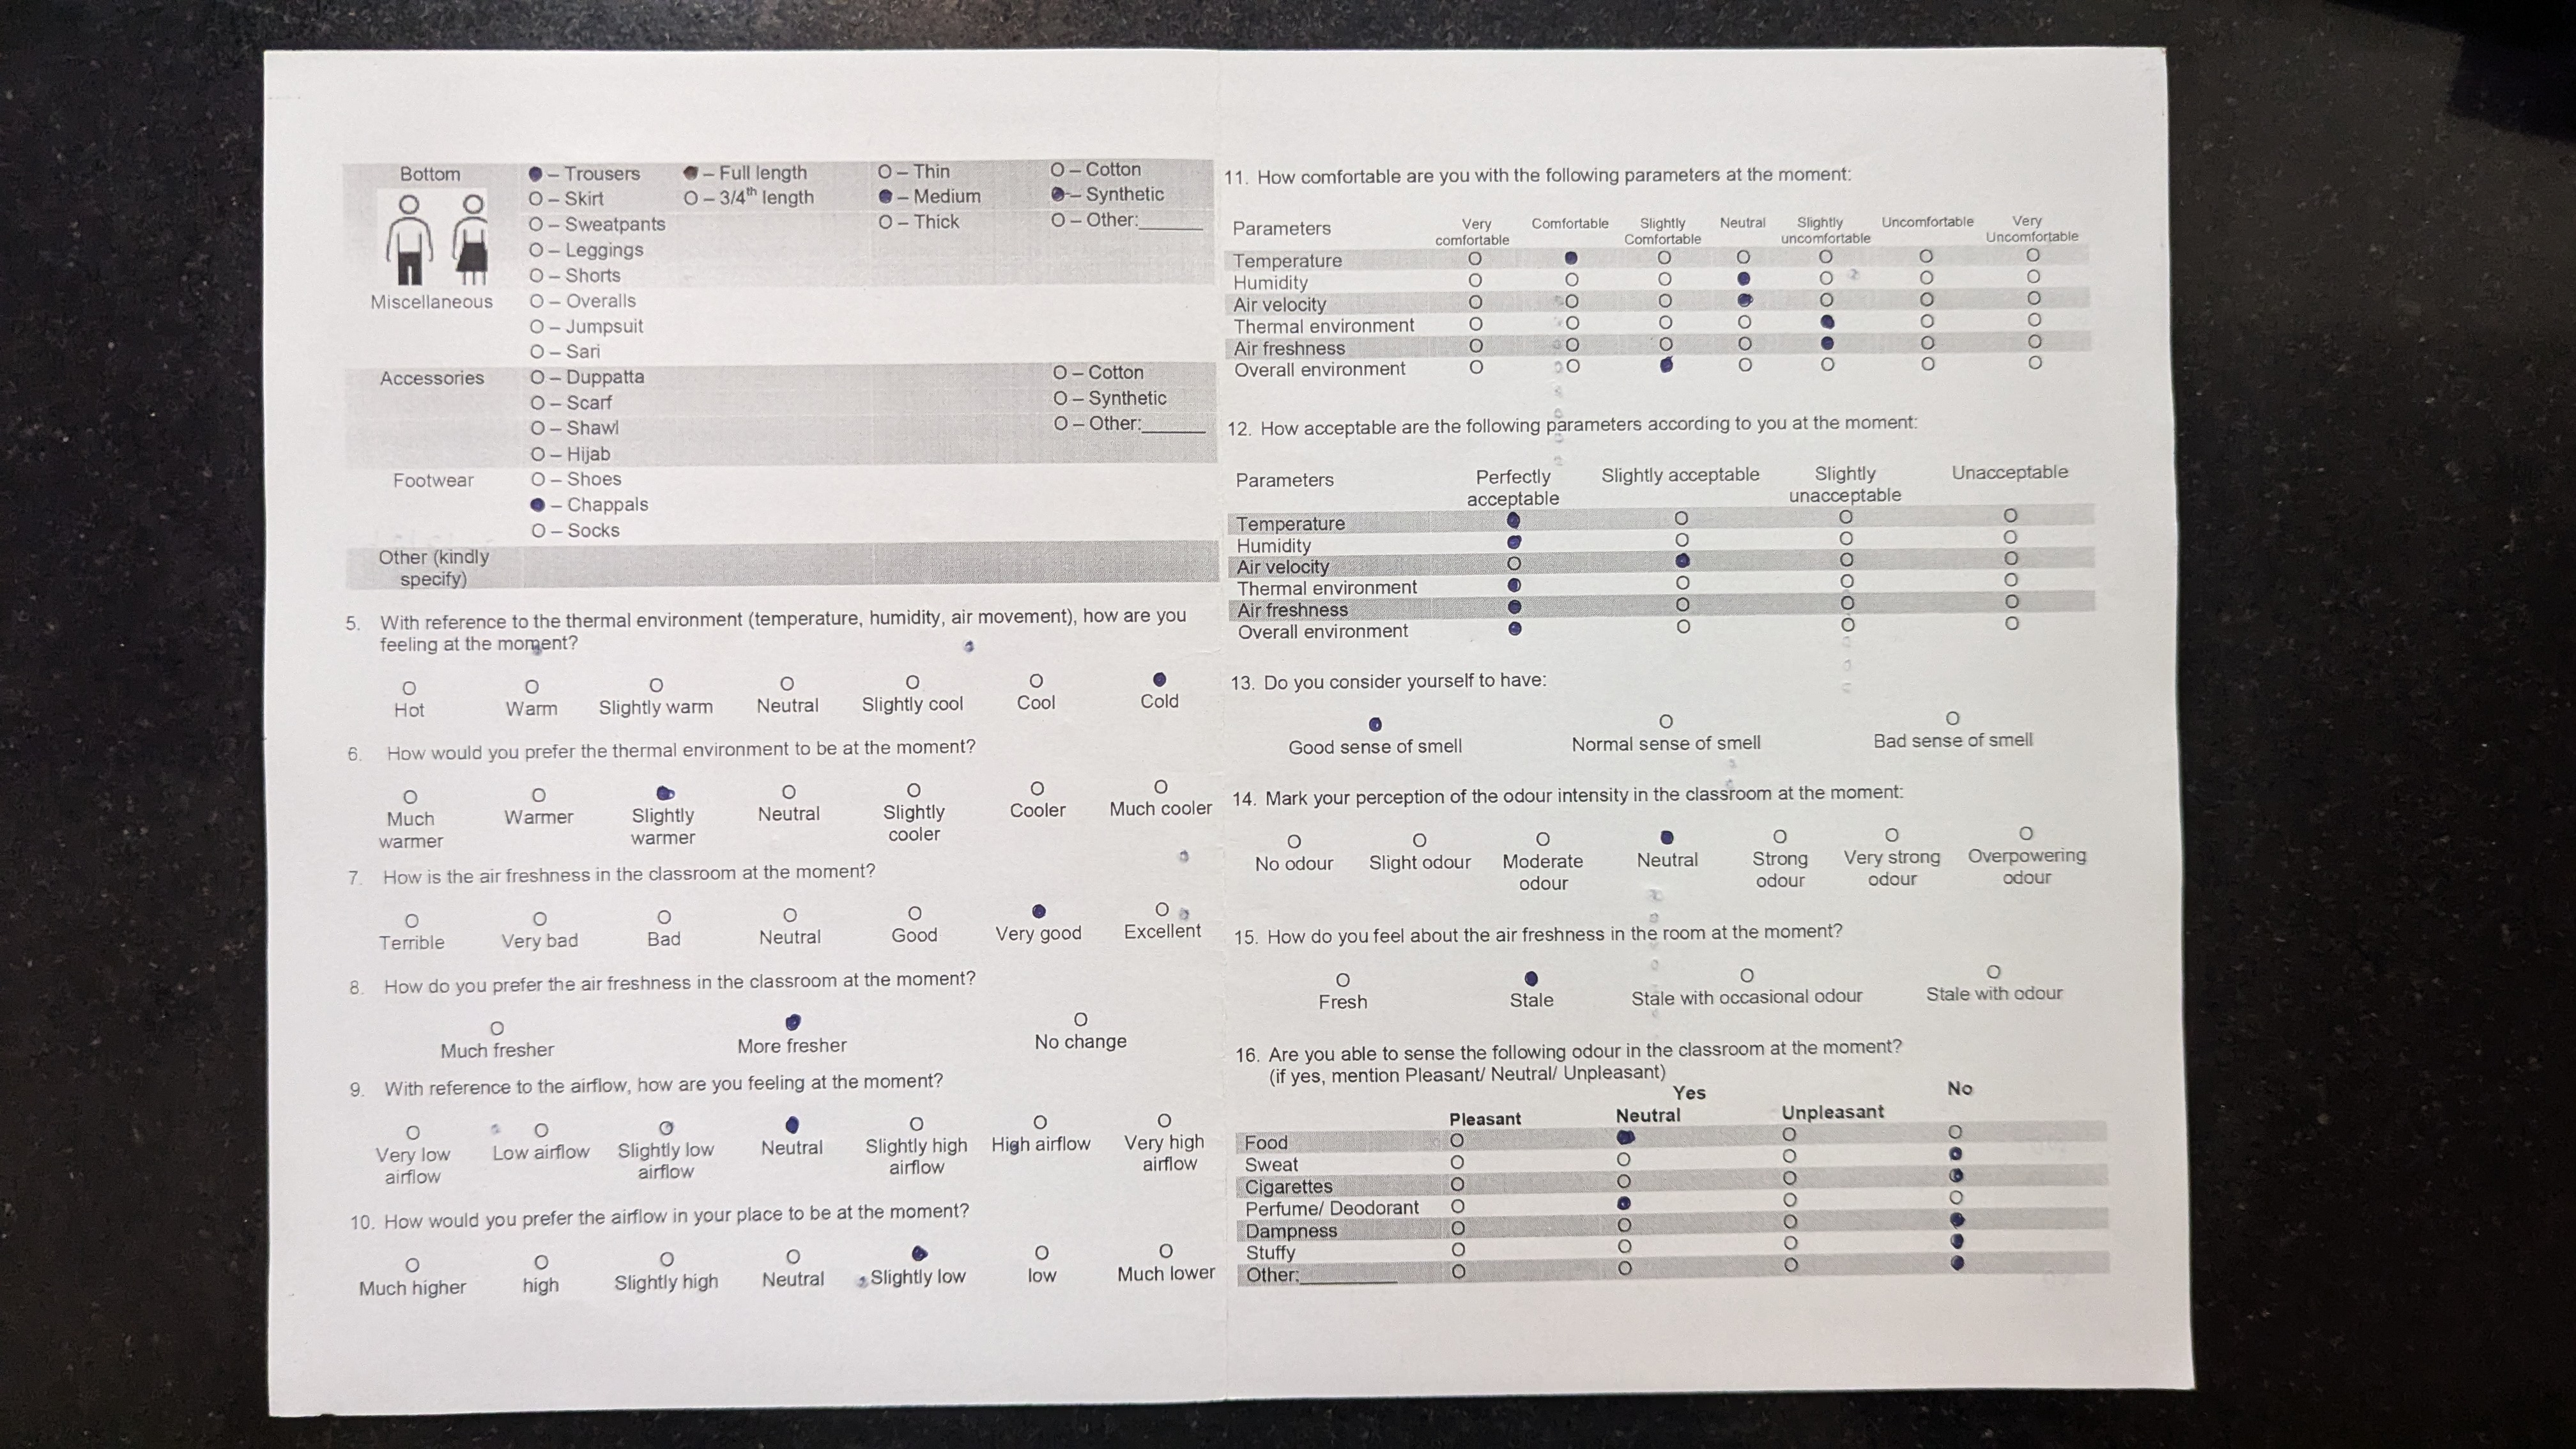 Bottom
● – Trousers ● – Full length O – Thin O – Cotton
O – Skirt O – 3/4th length ● – Medium ● – Synthetic
O – Sweatpants O – Thick O – Other:______
O – Leggings
O – Shorts
Miscellaneous O – Overalls
O – Jumpsuit
O – Sari
Accessories O – Duppatta O – Cotton
O – Scarf O – Synthetic
O – Shawl O – Other:______
O – Hijab
Footwear O – Shoes
● – Chappals
O – Socks
Other (kindly
specify)
5. With reference to the thermal environment (temperature, humidity, air movement), how are you
feeling at the moment?
O O O O O O ●
Hot Warm Slightly warm Neutral Slightly cool Cool Cold
6. How would you prefer the thermal environment to be at the moment?
O O ● O O O O
Much Warmer Slightly Neutral Slightly Cooler Much cooler
warmer warmer cooler
7. How is the air freshness in the classroom at the moment?
O O O O O ● O
Terrible Very bad Bad Neutral Good Very good Excellent
8. How do you prefer the air freshness in the classroom at the moment?
O ● O
Much fresher More fresher No change
9. With reference to the airflow, how are you feeling at the moment?
O O O ● O O O
Very low Low airflow Slightly low Neutral Slightly high High airflow Very high
airflow airflow airflow airflow
10. How would you prefer the airflow in your place to be at the moment?
O O O O ● O O
Much higher high Slightly high Neutral Slightly low low Much lower
11. How comfortable are you with the following parameters at the moment:
Parameters Very Comfortable Slightly Neutral Slightly Uncomfortable Very
comfortable Comfortable uncomfortable Uncomfortable
Temperature O ● O O O O O
Humidity O O O ● O O O
Air velocity O O O ● O O O
Thermal environment O O O O ● O O
Air freshness O O O O ● O O
Overall environment O O ● O O O O
12. How acceptable are the following parameters according to you at the moment:
Parameters Perfectly Slightly acceptable Slightly Unacceptable
acceptable unacceptable
Temperature ● O O O
Humidity ● O O O
Air velocity O ● O O
Thermal environment ● O O O
Air freshness ● O O O
Overall environment ● O O O
13. Do you consider yourself to have:
● O O
Good sense of smell Normal sense of smell Bad sense of smell
14. Mark your perception of the odour intensity in the classroom at the moment:
O O O ● O O O
No odour Slight odour Moderate Neutral Strong Very strong Overpowering
odour odour odour odour
15. How do you feel about the air freshness in the room at the moment?
O ● O O
Fresh Stale Stale with occasional odour Stale with odour
16. Are you able to sense the following odour in the classroom at the moment?
(if yes, mention Pleasant/ Neutral/ Unpleasant)
Yes No
Pleasant Neutral Unpleasant
Food O ● O O
Sweat O O O ●
Cigarettes O O O ●
Perfume/ Deodorant O ● O O
Dampness O O O ●
Stuffy O O O ●
Other:_________ O O O ●